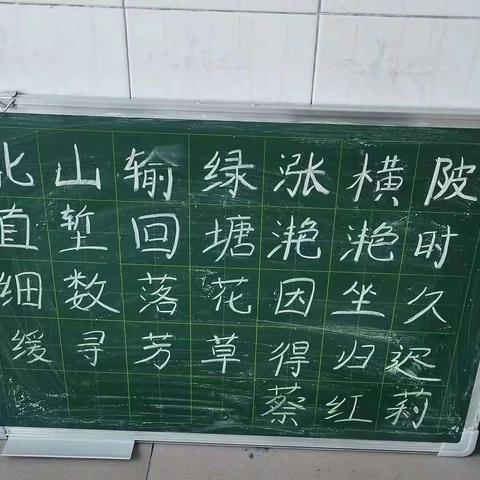 北山输绿涨横陂
直堑回塘滟滟时
细数落花因坐久
缓寻芳草得归迟
蔡红莉